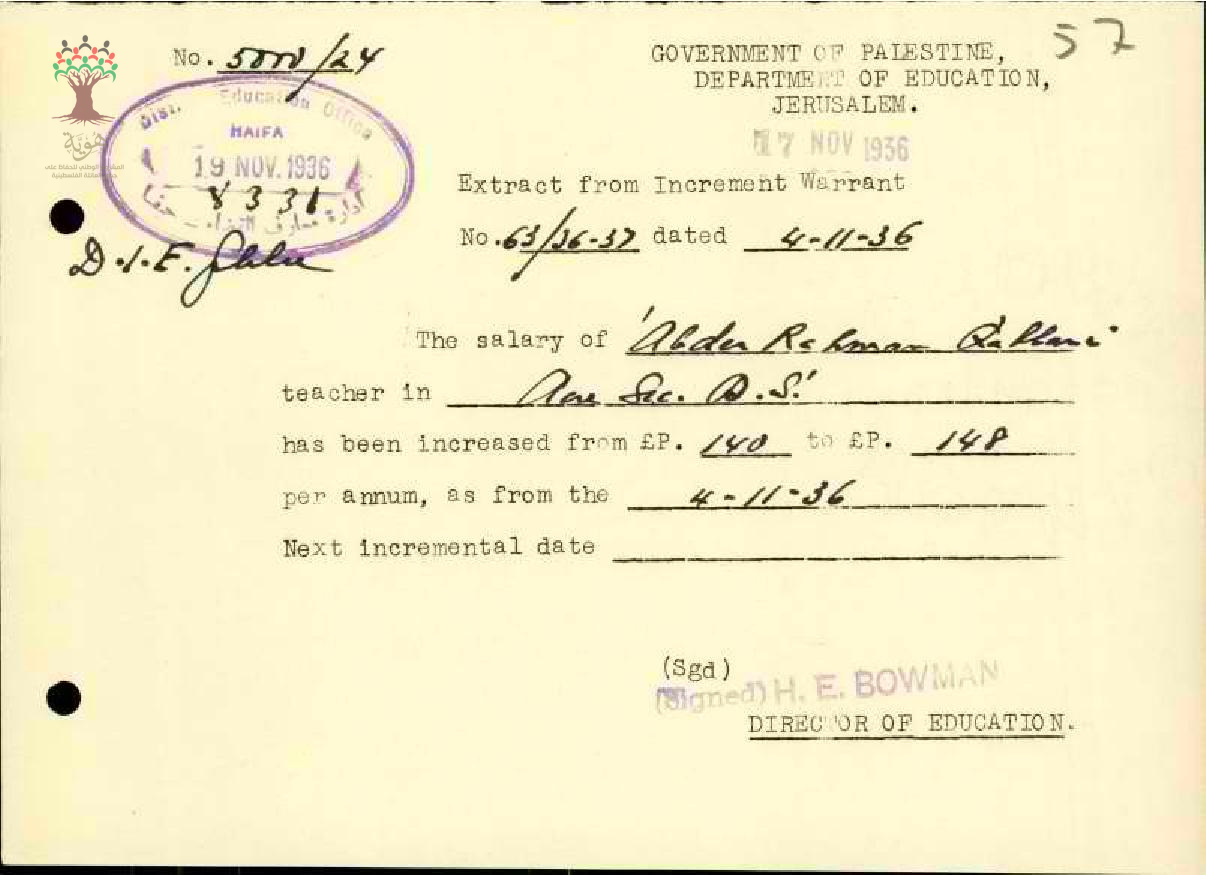 57
No. 5000/24
GOVERNMENT OF PALESTINE,
DEPARTMENT OF EDUCATION,
JERUSALEM.
17 NOV 1936
Dist. Education Office
HAIFA
19 NOV. 1936
8331
ادارة معارف حيفا
هوية
Extract from Increment Warrant
No. 63/36-37 dated 4-11-36
D.I.E.
The salary of 'Abder Rahman
teacher in Acre Sec. B.S.
has been increased from £P. 140 to £P. 148
per annum, as from the 4-11-36
Next incremental date
(Sgd)
(Signed) H. E. BOWMAN
DIRECTOR OF EDUCATION.